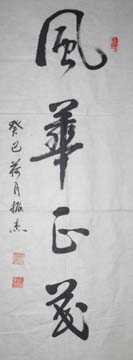 風華正茂
癸巳荷月振杰